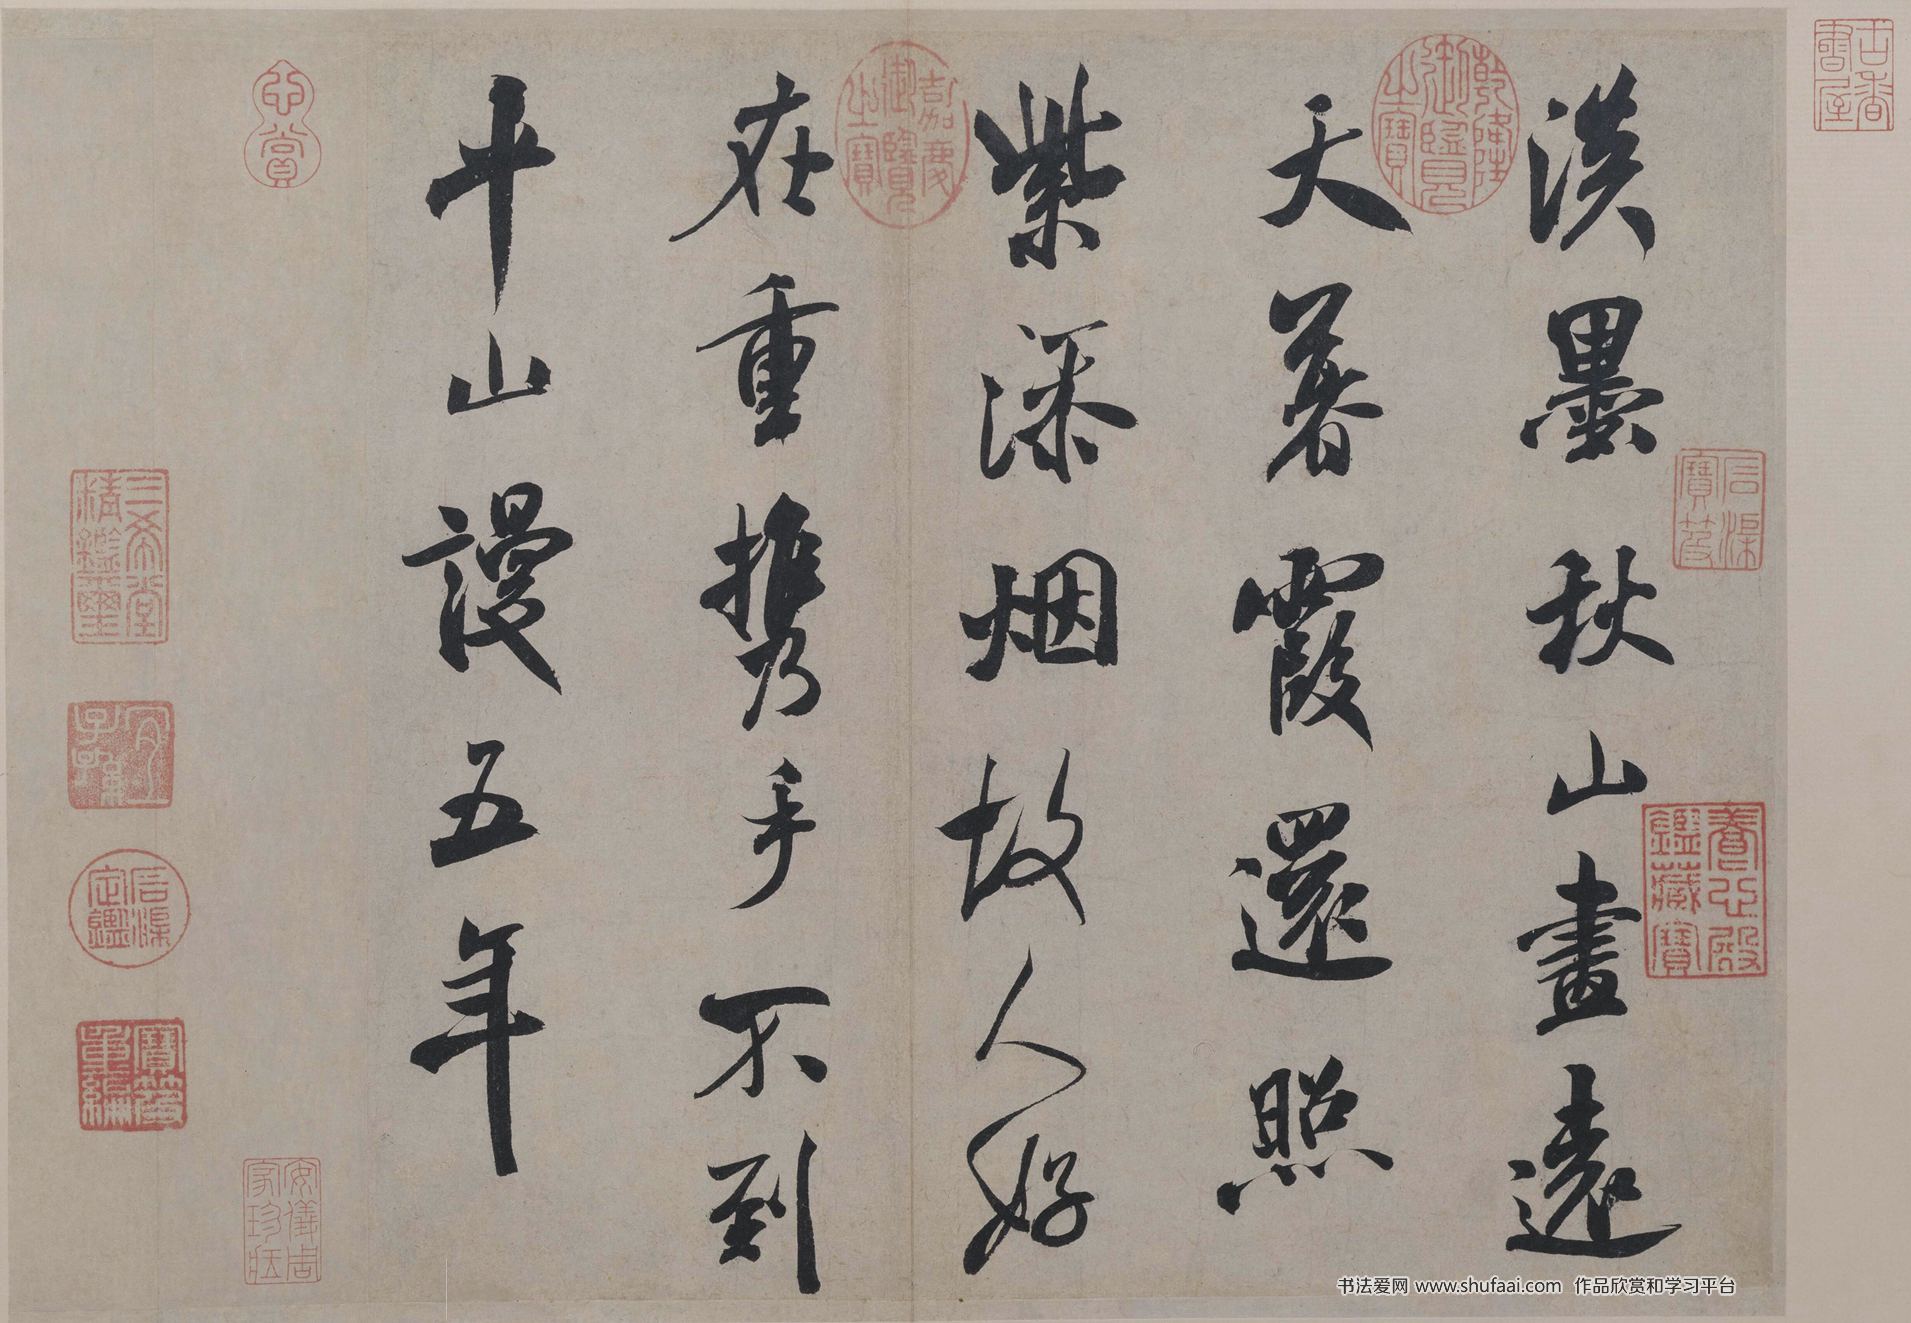 淡墨秋山畫遠
天暮霞還照
紫添烟故人好
在重攜手不到
平山謾五年
乾隆御覽之寶
嘉慶御覽之寶
養心殿鑑藏寶
三希堂精鑑璽
宜子孫
寶笈重編
石渠定鑑
石渠寶笈
心賞
安儀周家珍藏
古香書屋
书法爱网 www.shufaai.com 作品欣赏和学习平台